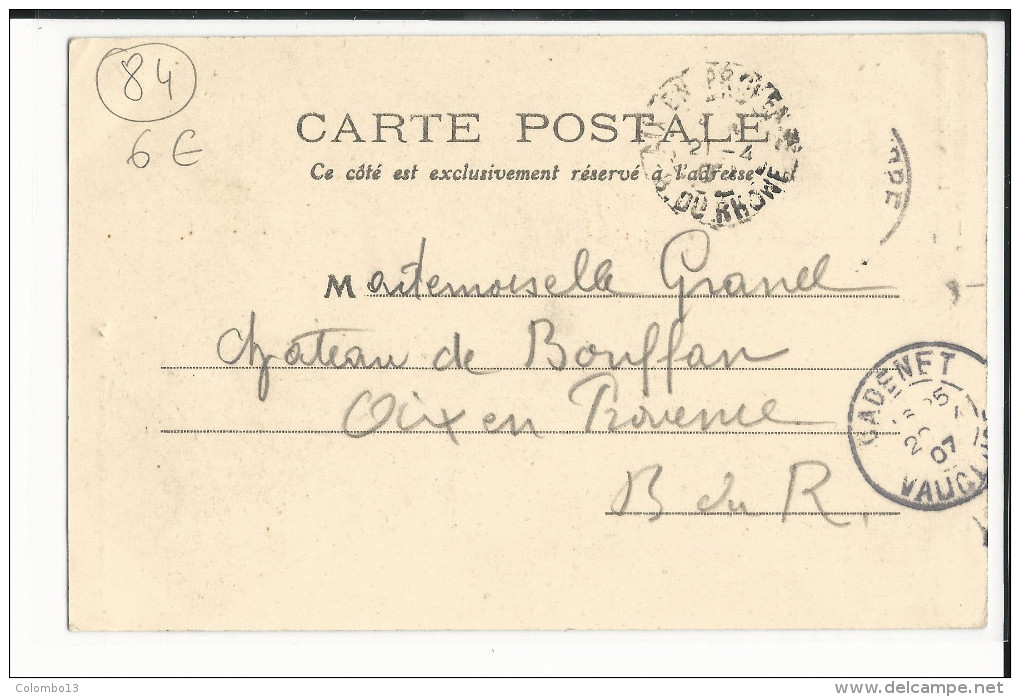 84
6 €
CARTE POSTALE
Ce côté est exclusivement réservé à l'adresse
AIX EN PROVENCE
21 -4
B. DU RHONE
Mademoiselle Granel
Château de Bouffan
Aix en Provence
B du R.
CADENET
07
VAUCLUSE
Colombo13
www.delcampe.net